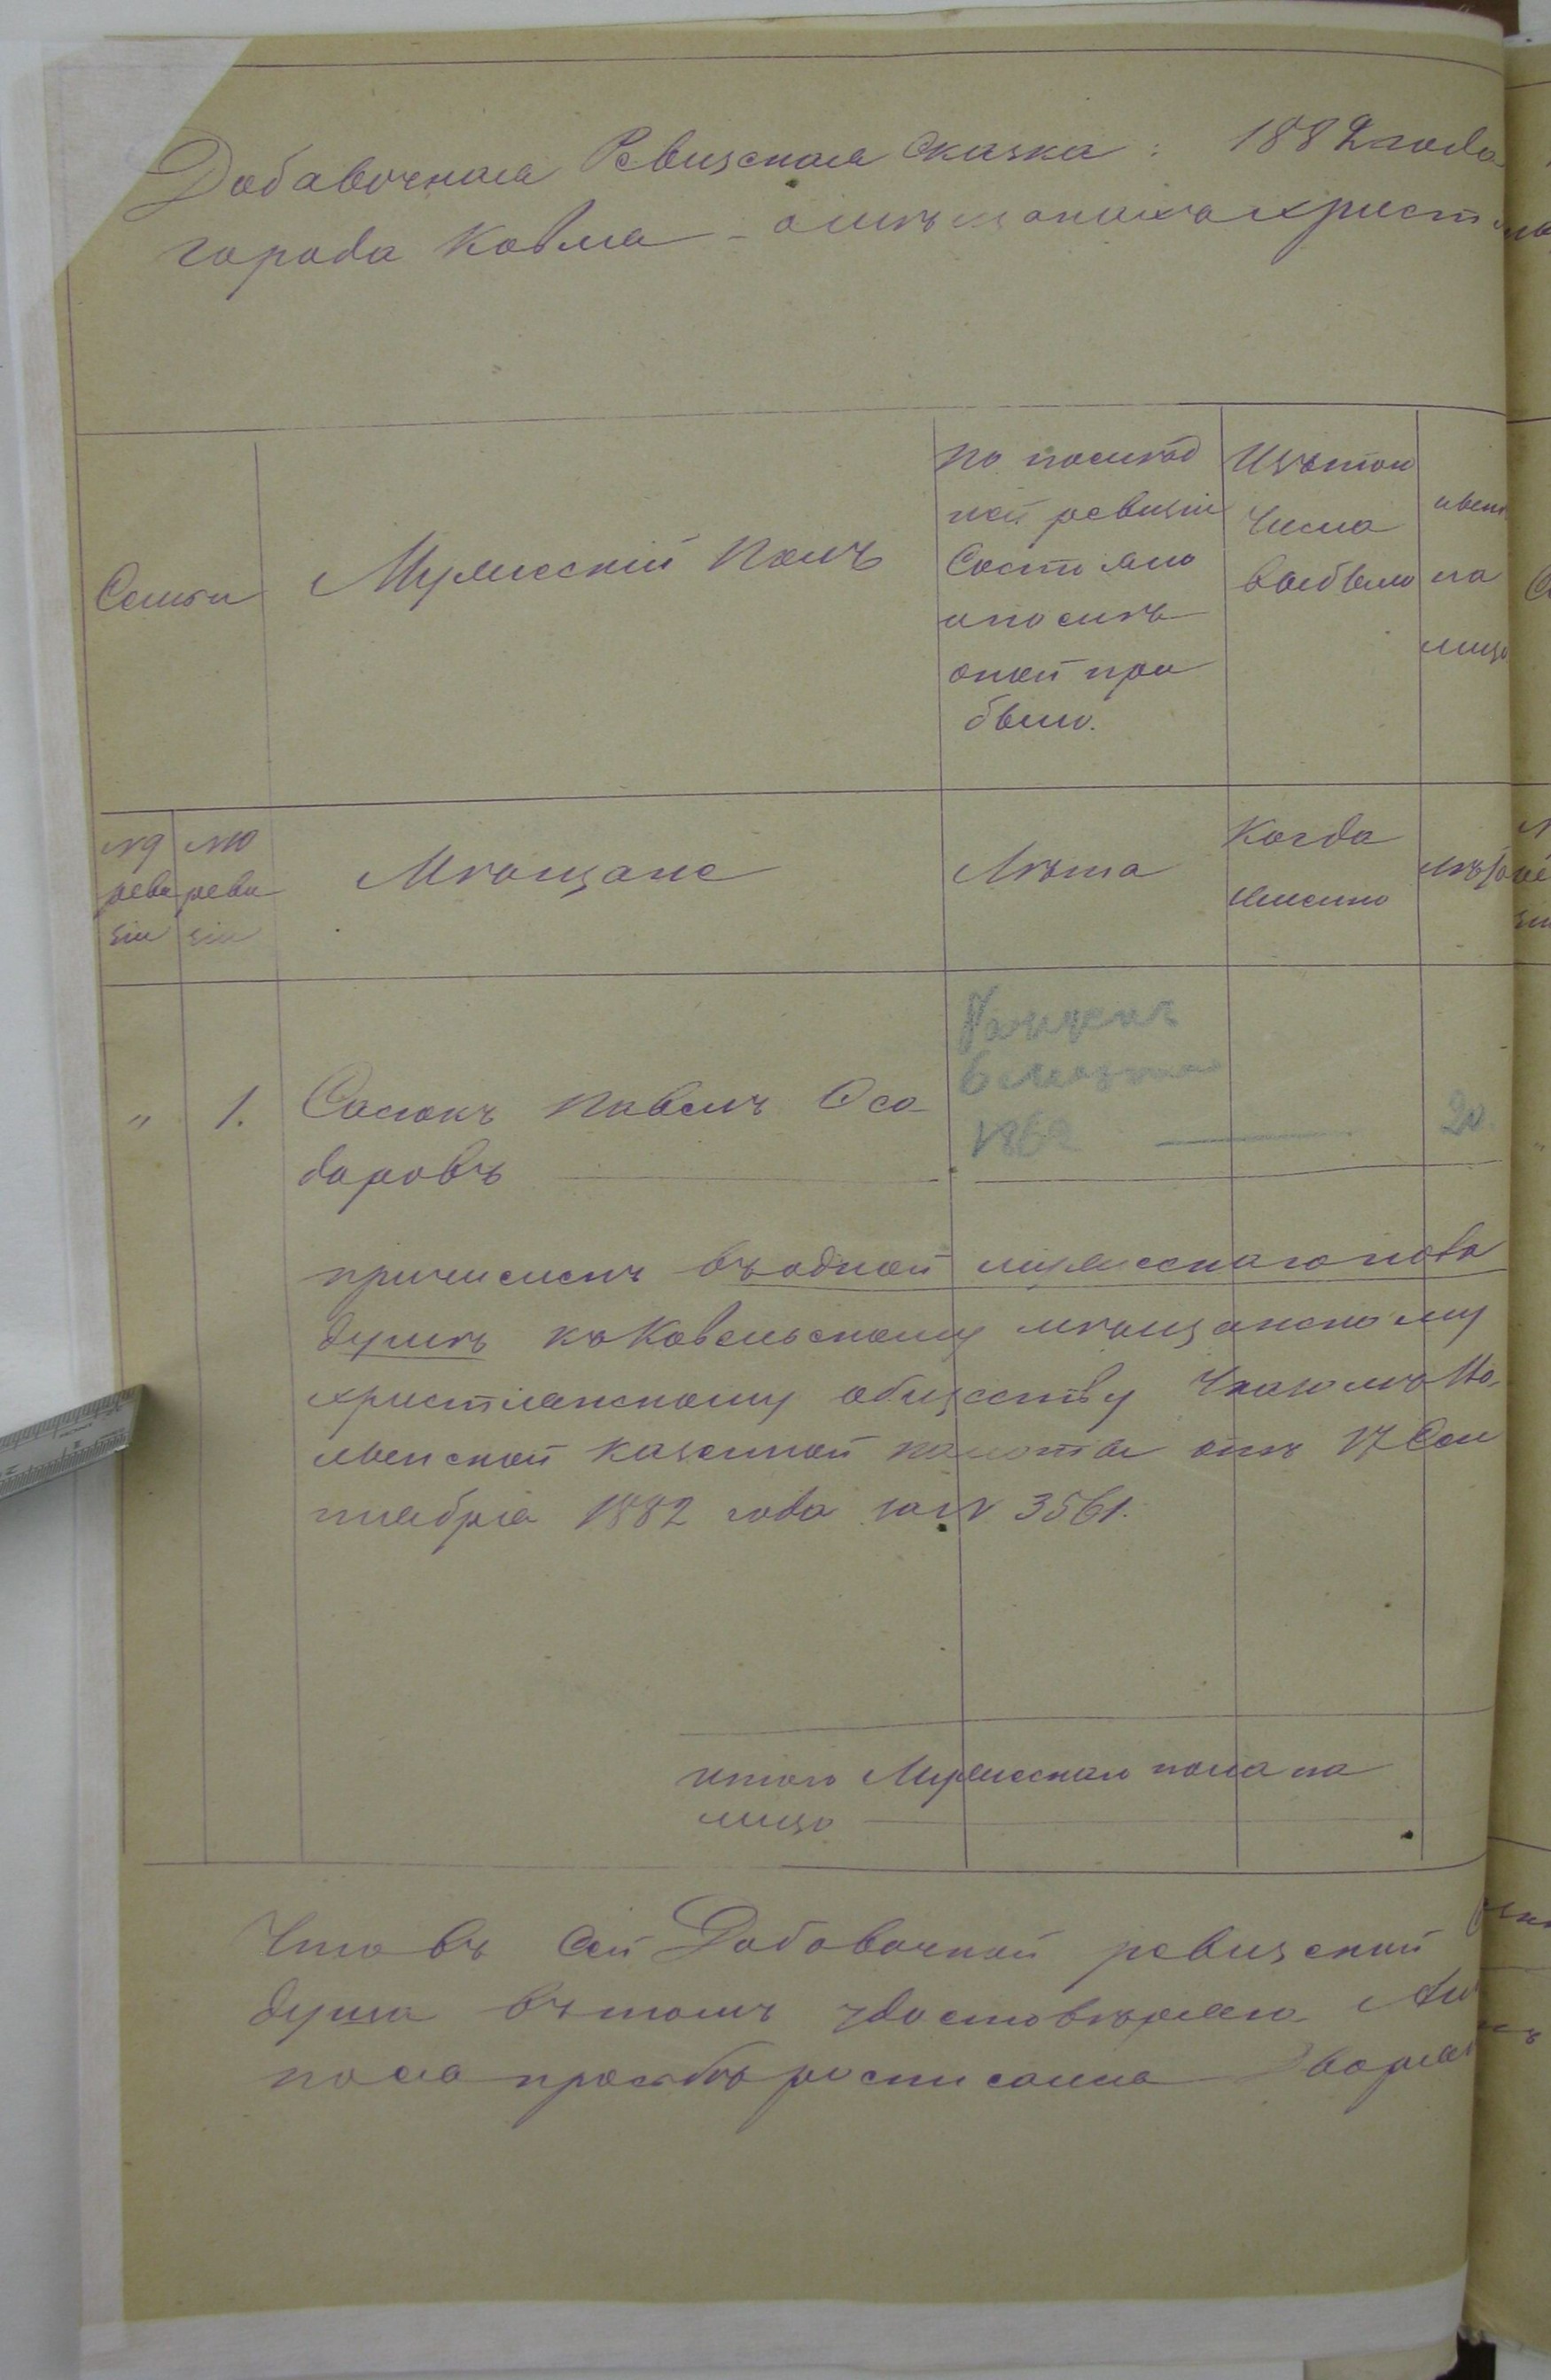 Добавочная Ревизская Сказка: 1882 года
города Ковля о мѣщанахъ христ
Семьи
Мужескій полъ
по послѣд
ней ревизіи
Состояло
и послѣ
оной при
было.
Изътого
Числа
выбыло
нынѣ
на
лицо
№9
реви
зіи
№10
реви
зіи
Мѣщане
Лѣта
Когда
именно
Лѣта
" 1. Сасюкъ Павелъ Ѳео
доровъ
1862
20.
причисленъ въодной мужескаго пола
душѣ къ Ковельскому мѣщанскому
христіанскому обществу Указомъ Во
лынской Казенной палаты отъ 17 Сен
тября 1882 года за № 3561.
итого Мужескаго пола на
лицо
Что въ Сей Добавочной ревизской
душа въ томъ удостовѣряю